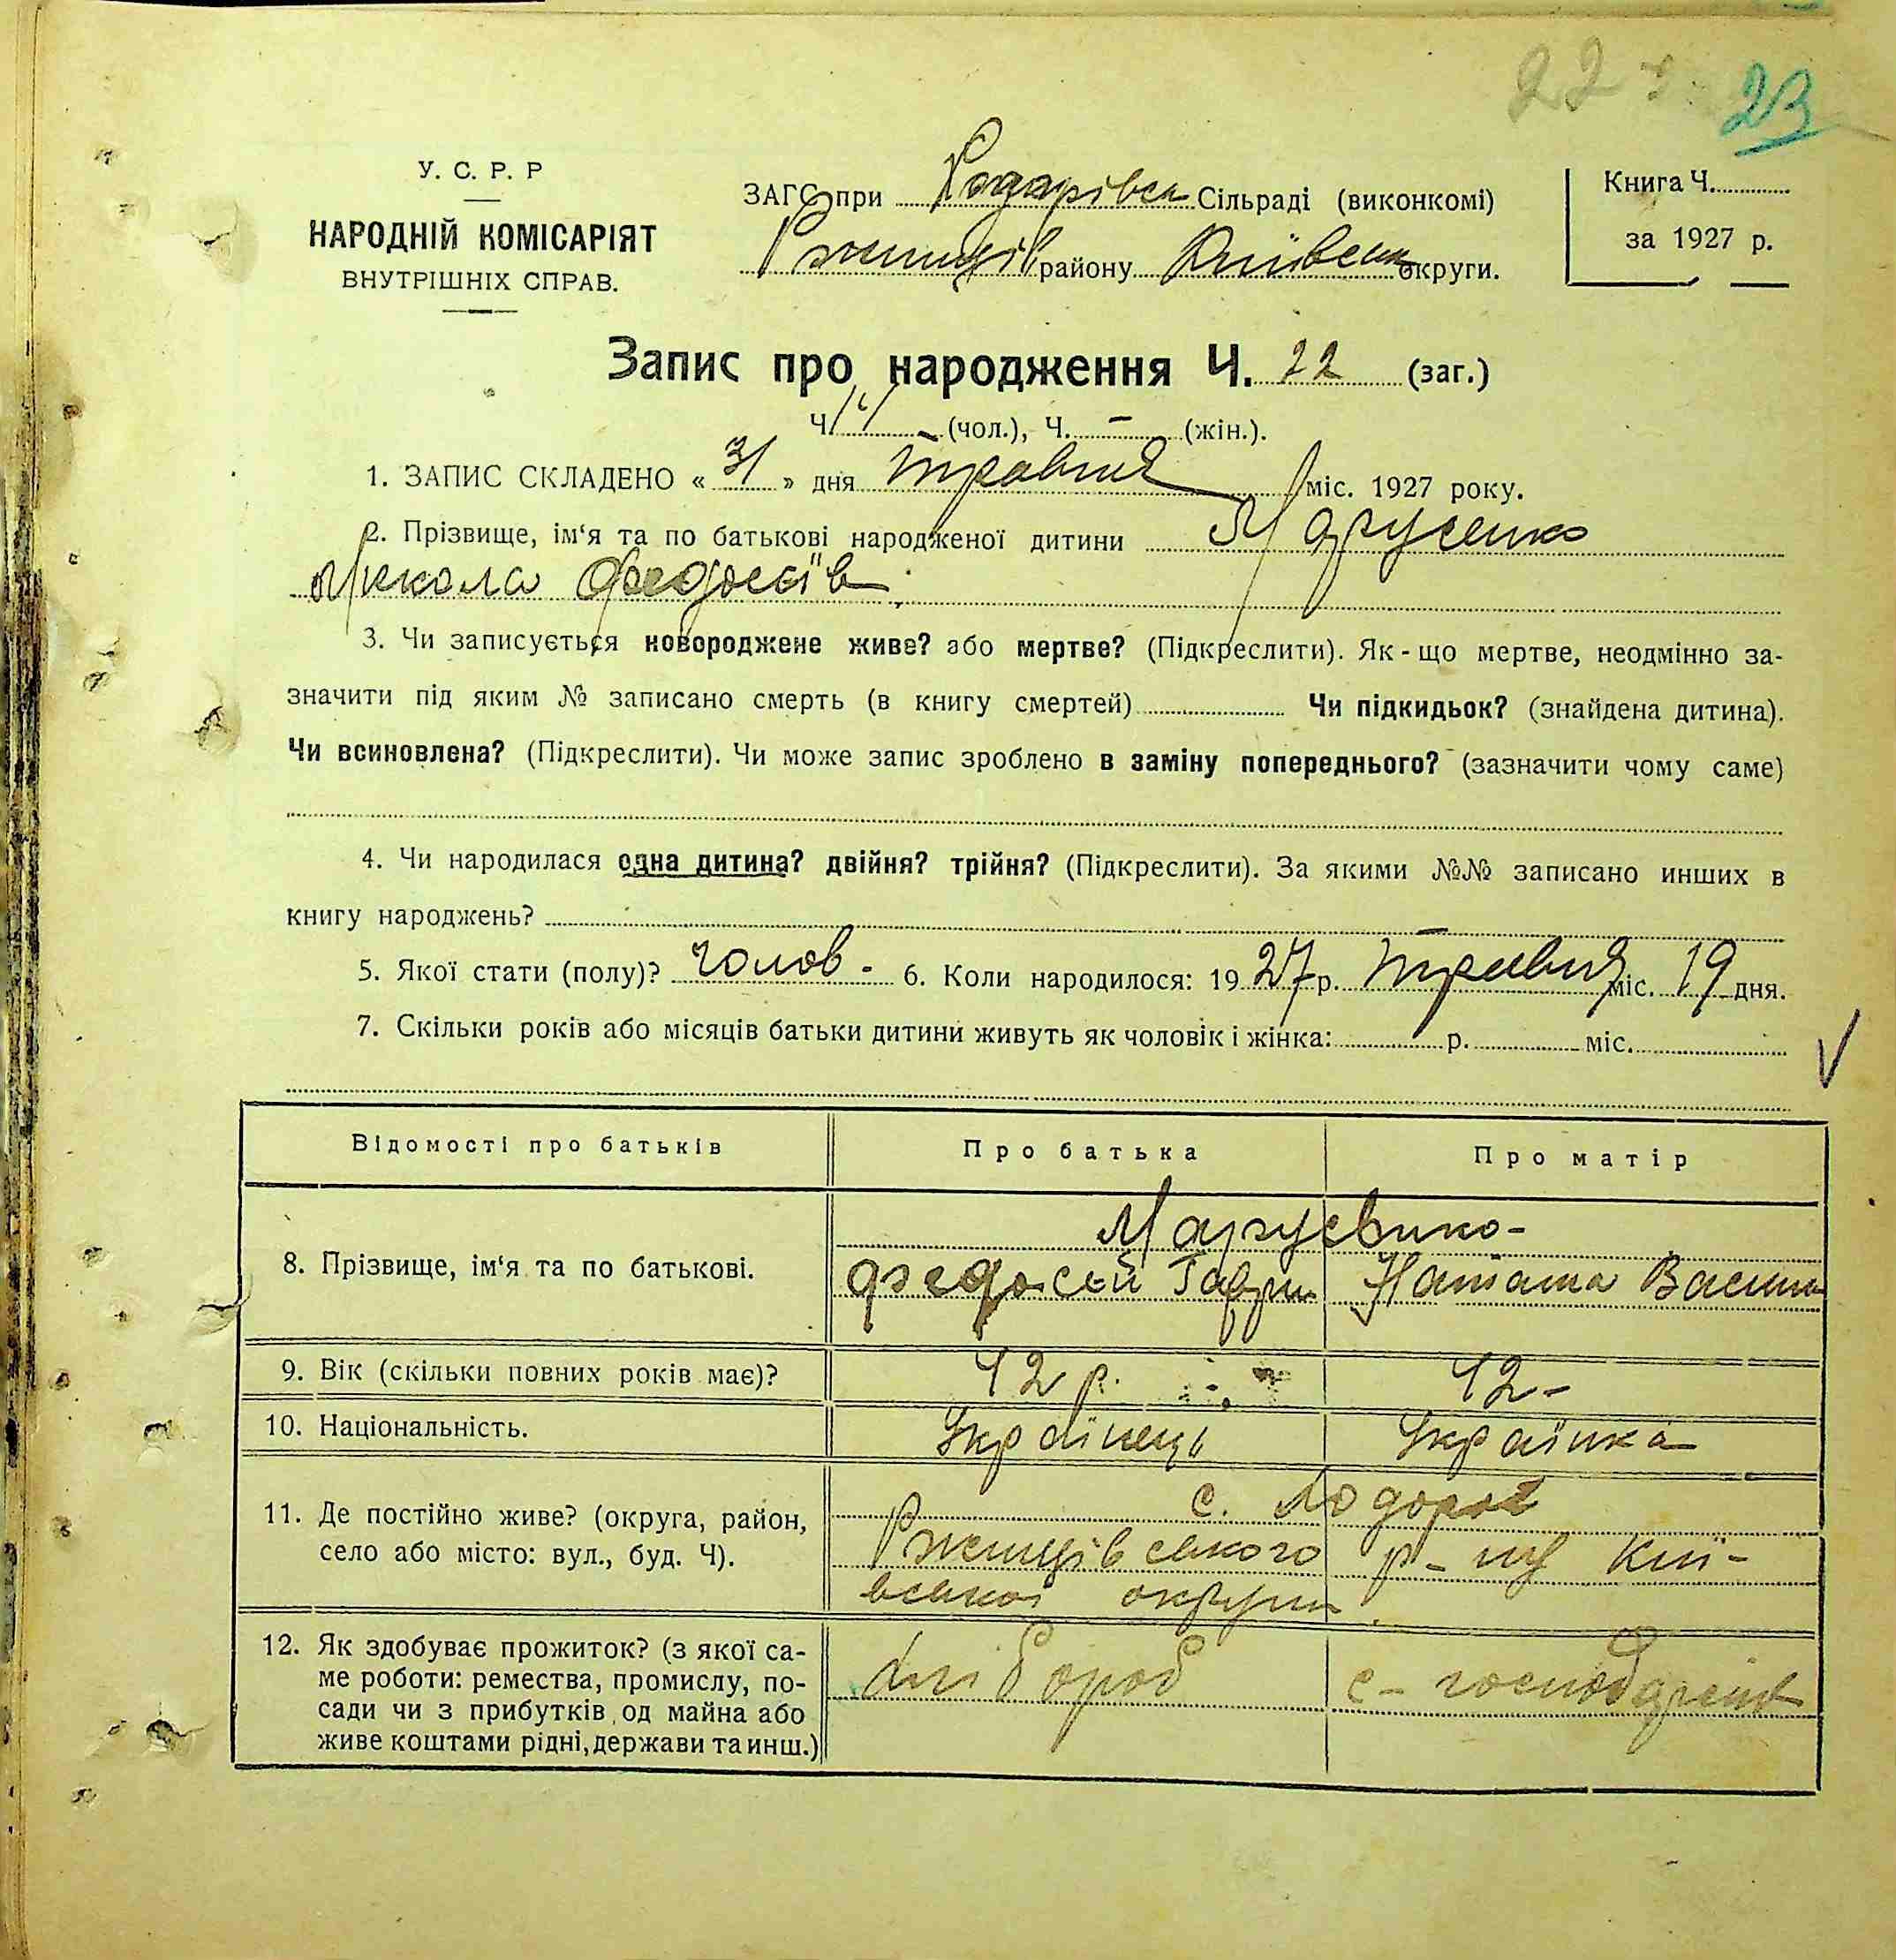 22 23
У. С. Р. Р
НАРОДНІЙ КОМІСАРІЯТ
ВНУТРІШНІХ СПРАВ.
ЗАГС при Ходорівськ Сільраді (виконкомі)
Ржищів району Київськ округи.
Книга Ч.
за 1927 р.
Запис про народження Ч. 22 (заг.)
Ч. (чол.), Ч. – (жін.).
1. ЗАПИС СКЛАДЕНО « 31 » дня травня міс. 1927 року.
2. Прізвище, ім‘я та по батькові народженої дитини Марусенко
Микола Федосєїв
3. Чи записується новороджене живе? або мертве? (Підкреслити). Як-що мертве, неодмінно за-
значити під яким № записано смерть (в книгу смертей) Чи підкидьок? (знайдена дитина).
Чи всиновлена? (Підкреслити). Чи може запис зроблено в заміну попереднього? (зазначити чому саме)
4. Чи народилася одна дитина? двійня? трійня? (Підкреслити). За якими №№ записано инших в
книгу народжень?
5. Якої стати (полу)? чолов. 6. Коли народилося: 1927 р. травня міс. 19 дня.
7. Скільки років або місяців батьки дитини живуть як чоловік і жінка: р. міс.
Відомості про батьків Про батька Про матір
8. Прізвище, ім‘я та по батькові. Марусенко-
Федосєй Гаври Наталка Васили
9. Вік (скільки повних років має)? 42 р. 42 -
10. Національність. Українець Українка
11. Де постійно живе? (округа, район,
село або місто: вул., буд. Ч).
с. Ходорові
Ржищівського р-ну Киї-
вської округи.
12. Як здобуває прожиток? (з якої са-
ме роботи: ремества, промислу, по-
сади чи з прибутків од майна або
живе коштами рідні, держави та инш.)
хлібороб с-господарств